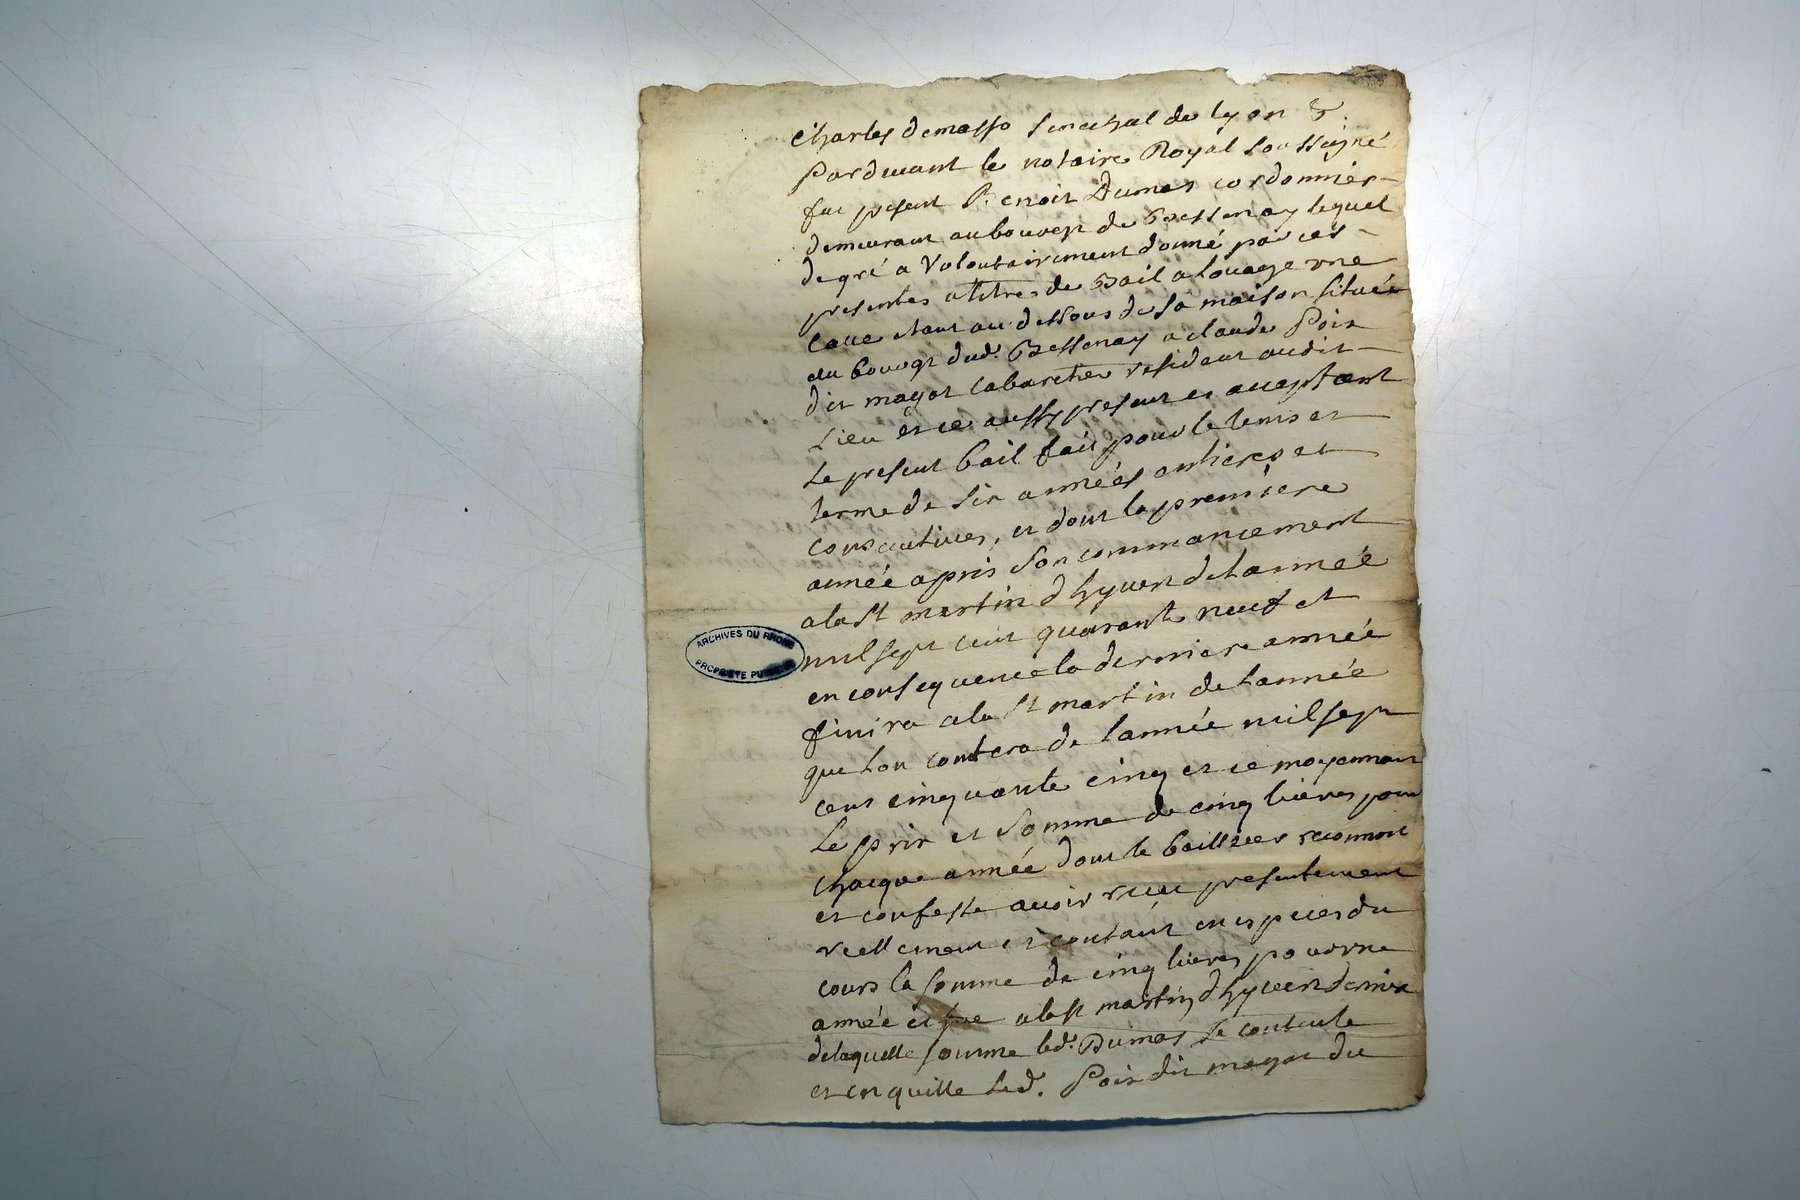 Charles demasso senechal de lyon &.
Pardevant le notaire Royal soussigné
fut present Benoit Dumas cordonnier
demeurant au bourg de Bessenay lequel
de gré a volontairement donné par ces
presentes a titre de Bail a louage une
cave etant au dessous de sa maison située
au bourg dud. Bessenay a claude Poix
dit mayot cabaretier residant audit
Lieu et ce aussy present et acceptant
Le present bail fait pour le tems et
terme de six années entieres et
consecutives, et dont la premiere
année a pris son commancement
a la St martin d'hyver de l'année
mil sept cent quarante neuf et
en consequence la derniere année
finira a la St martin de l'année
que l'on contera de l'année mil sept
cent cinquante cinq et ce moyennant
Le prix et somme de cinq livres pour
chacque année dont le bailleur reconnoit
et confesse avoir receu presentement
reellement et contant en especes du
cours la somme de cinq livres pour une
année a la St martin d'hyver derniere
de laquelle somme led. Dumas se contente
et en quitte led. Poix dit mayot du
ARCHIVES DU RHONE
PROPRIETE PUBLIQUE